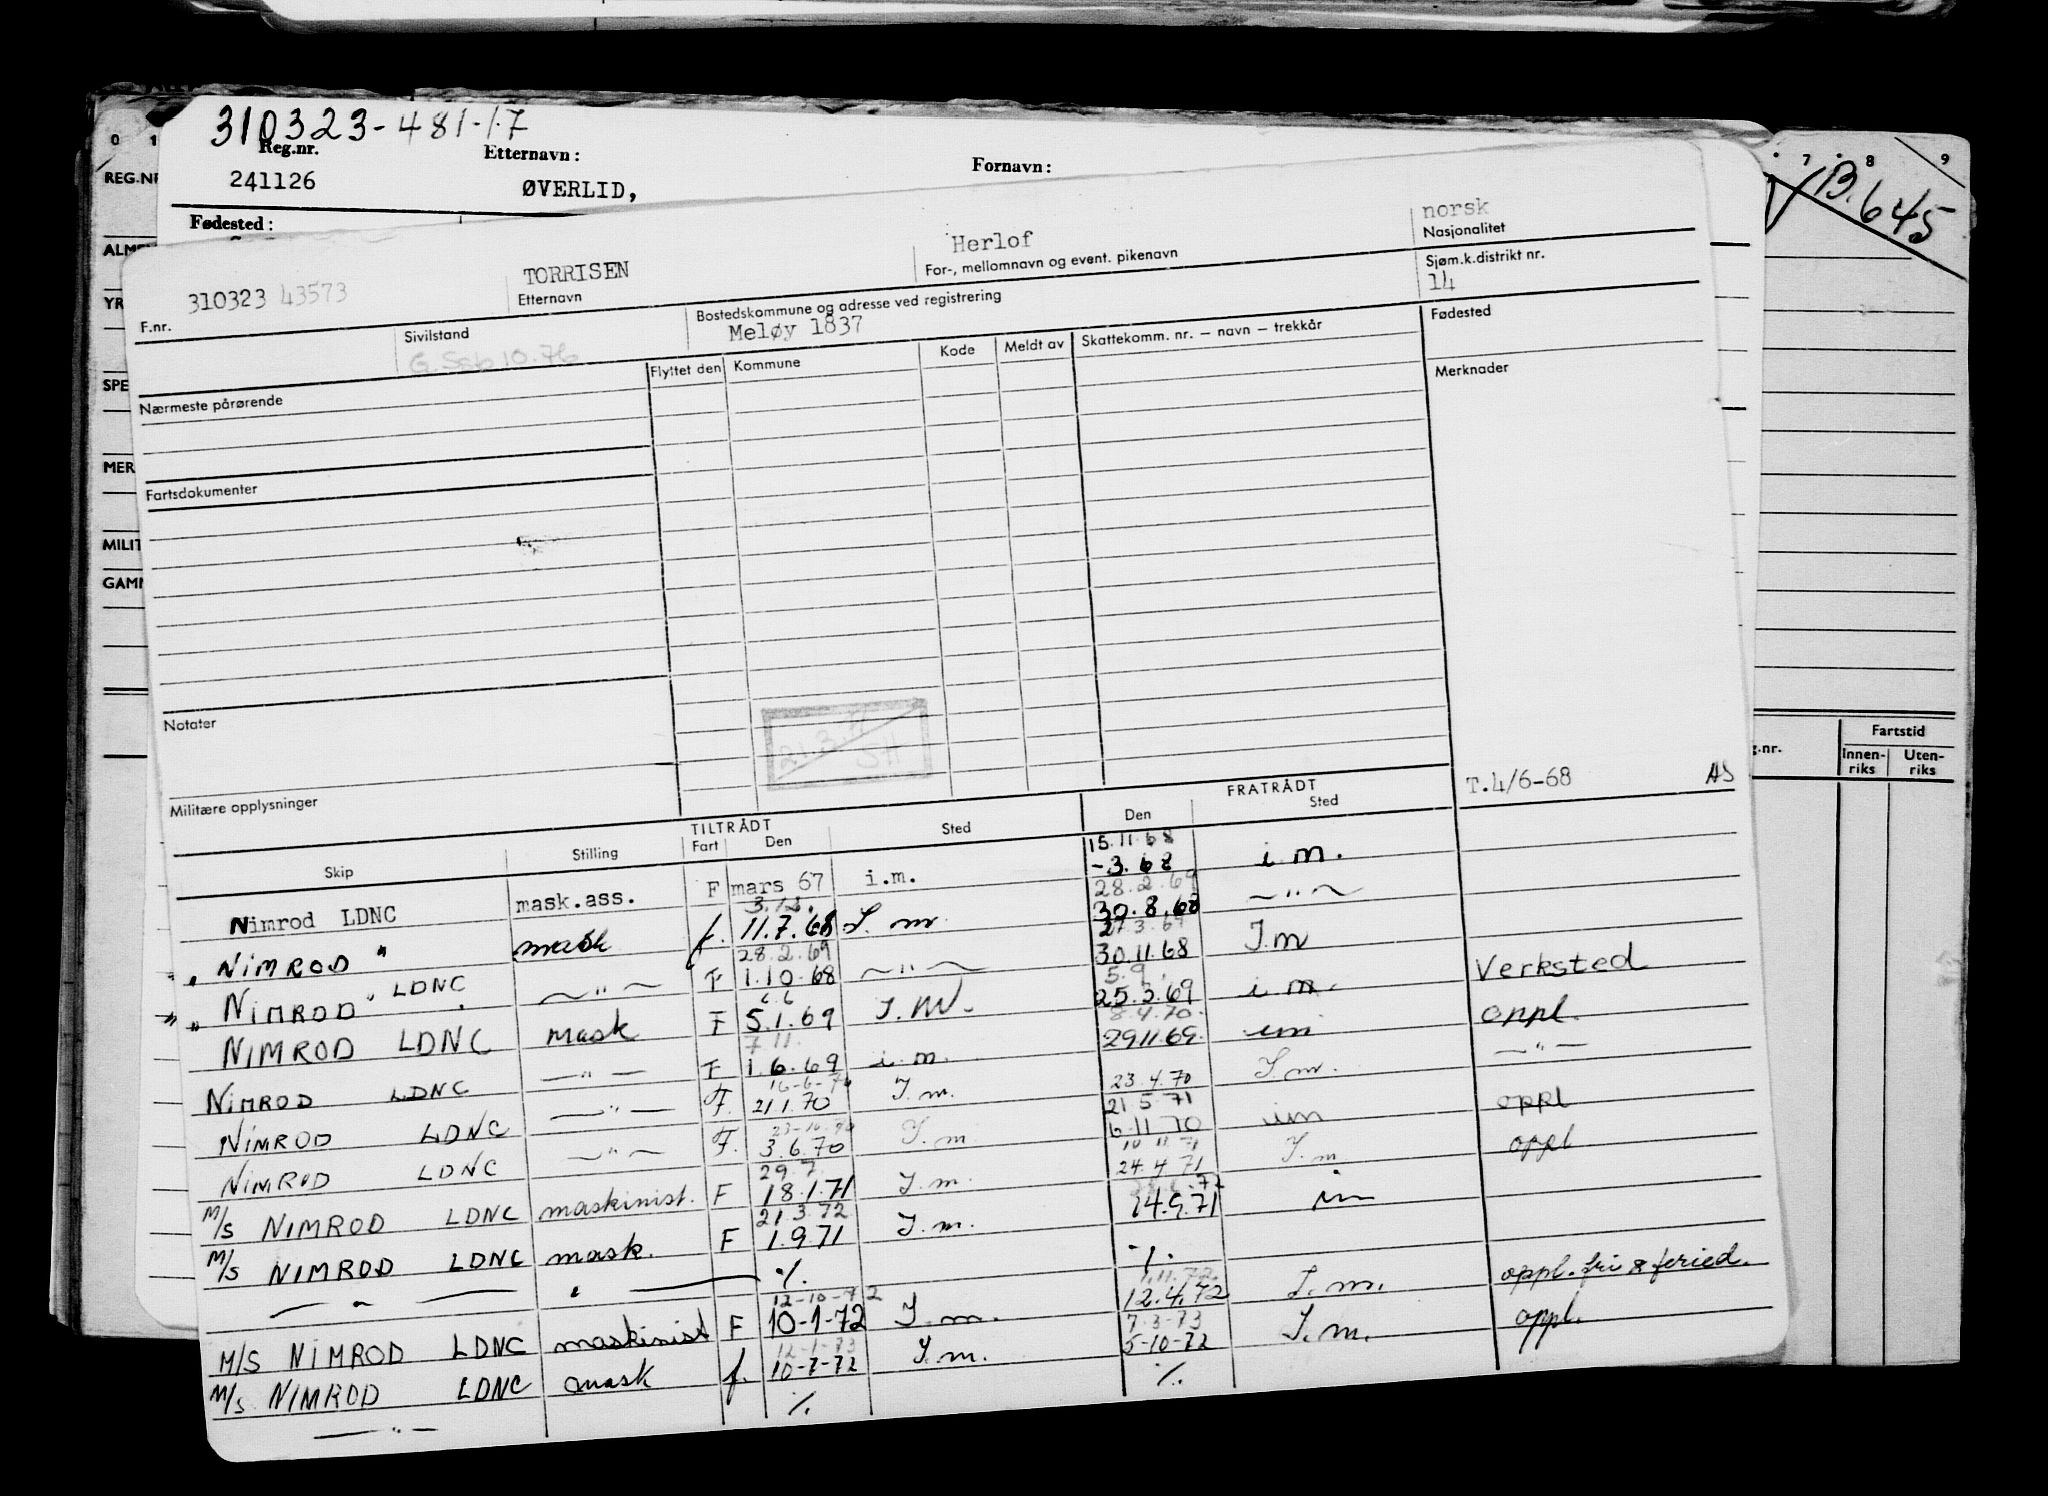 310323-481-17
Reg.nr. Etternavn: Fornavn:
241126 ØVERLID,
Fødested:
0 1 7 8 9
REG.NR
B.645
ALM
YR
SPE
MER
MILIT
GAMM
Fartstid
g.nr. Innen-riks Uten-riks
310323 43573 TORRISEN Herlof norsk
F.nr. Etternavn For-, mellomnavn og event. pikenavn Nasjonalitet
Sivilstand Bostedskommune og adresse ved registrering Sjøm.k.distrikt nr.
Meløy 1837 14
Flyttet den Kommune Kode Meldt av Skattekomm. nr. — navn — trekkår Fødested
Nærmeste pårørende Merknader
Fartsdokumenter
Notater
21.3. SH
Militære opplysninger T.4/6-68 AS
TILTRÅDT FRATRÅDT
Skip Stilling Fart Den Sted Den Sted
15.11.68
Nimrod LDNC mask.ass. F mars 67 i.m. -3.68 i.m.
28.2.69
" NIMROD " mask f. 11.7.68 I.m 30.8.68 — " —
28.2.69
" NIMROD " LDNC — " — F 1.10.68 — " — 30.11.68 I.m
5.9.
NIMROD LDNC mask F 5.1.69 I.M. 25.3.69 i m. Verksted
7.11. 8.4.70.
NIMROD LDNC — " — F 1.6.69 i.m. 29.11.69. im oppl.
16-6-70 23.4.70
NIMROD LDNC — " — F. 21.1.70 I.m. I.m. — " —
21.5.71
NIMROD LDNC — " — F. 3.6.70 I.m. 6.11 70 im oppl
29.7. 10.11.71
M/S NIMROD LDNC maskinist. F 18.1.71 I.m. 24.4 71 I.m oppl
21.3.72
M/S NIMROD LDNC mask. F 1.9.71 I.m. 14.9.71 im
— " — " ·/. ·/.
12-10-72 1.11.72.
M/S NIMROD LDNC maskinist F 10-1-72 I.m. 12.4.72 I.m. oppl. fri & feried.
12-1-73 7-3-73
M/S NIMROD LDNC mask f. 10-7-72 I.m. 5-10-72 I.m. oppl.
— " — ·/. ·/.